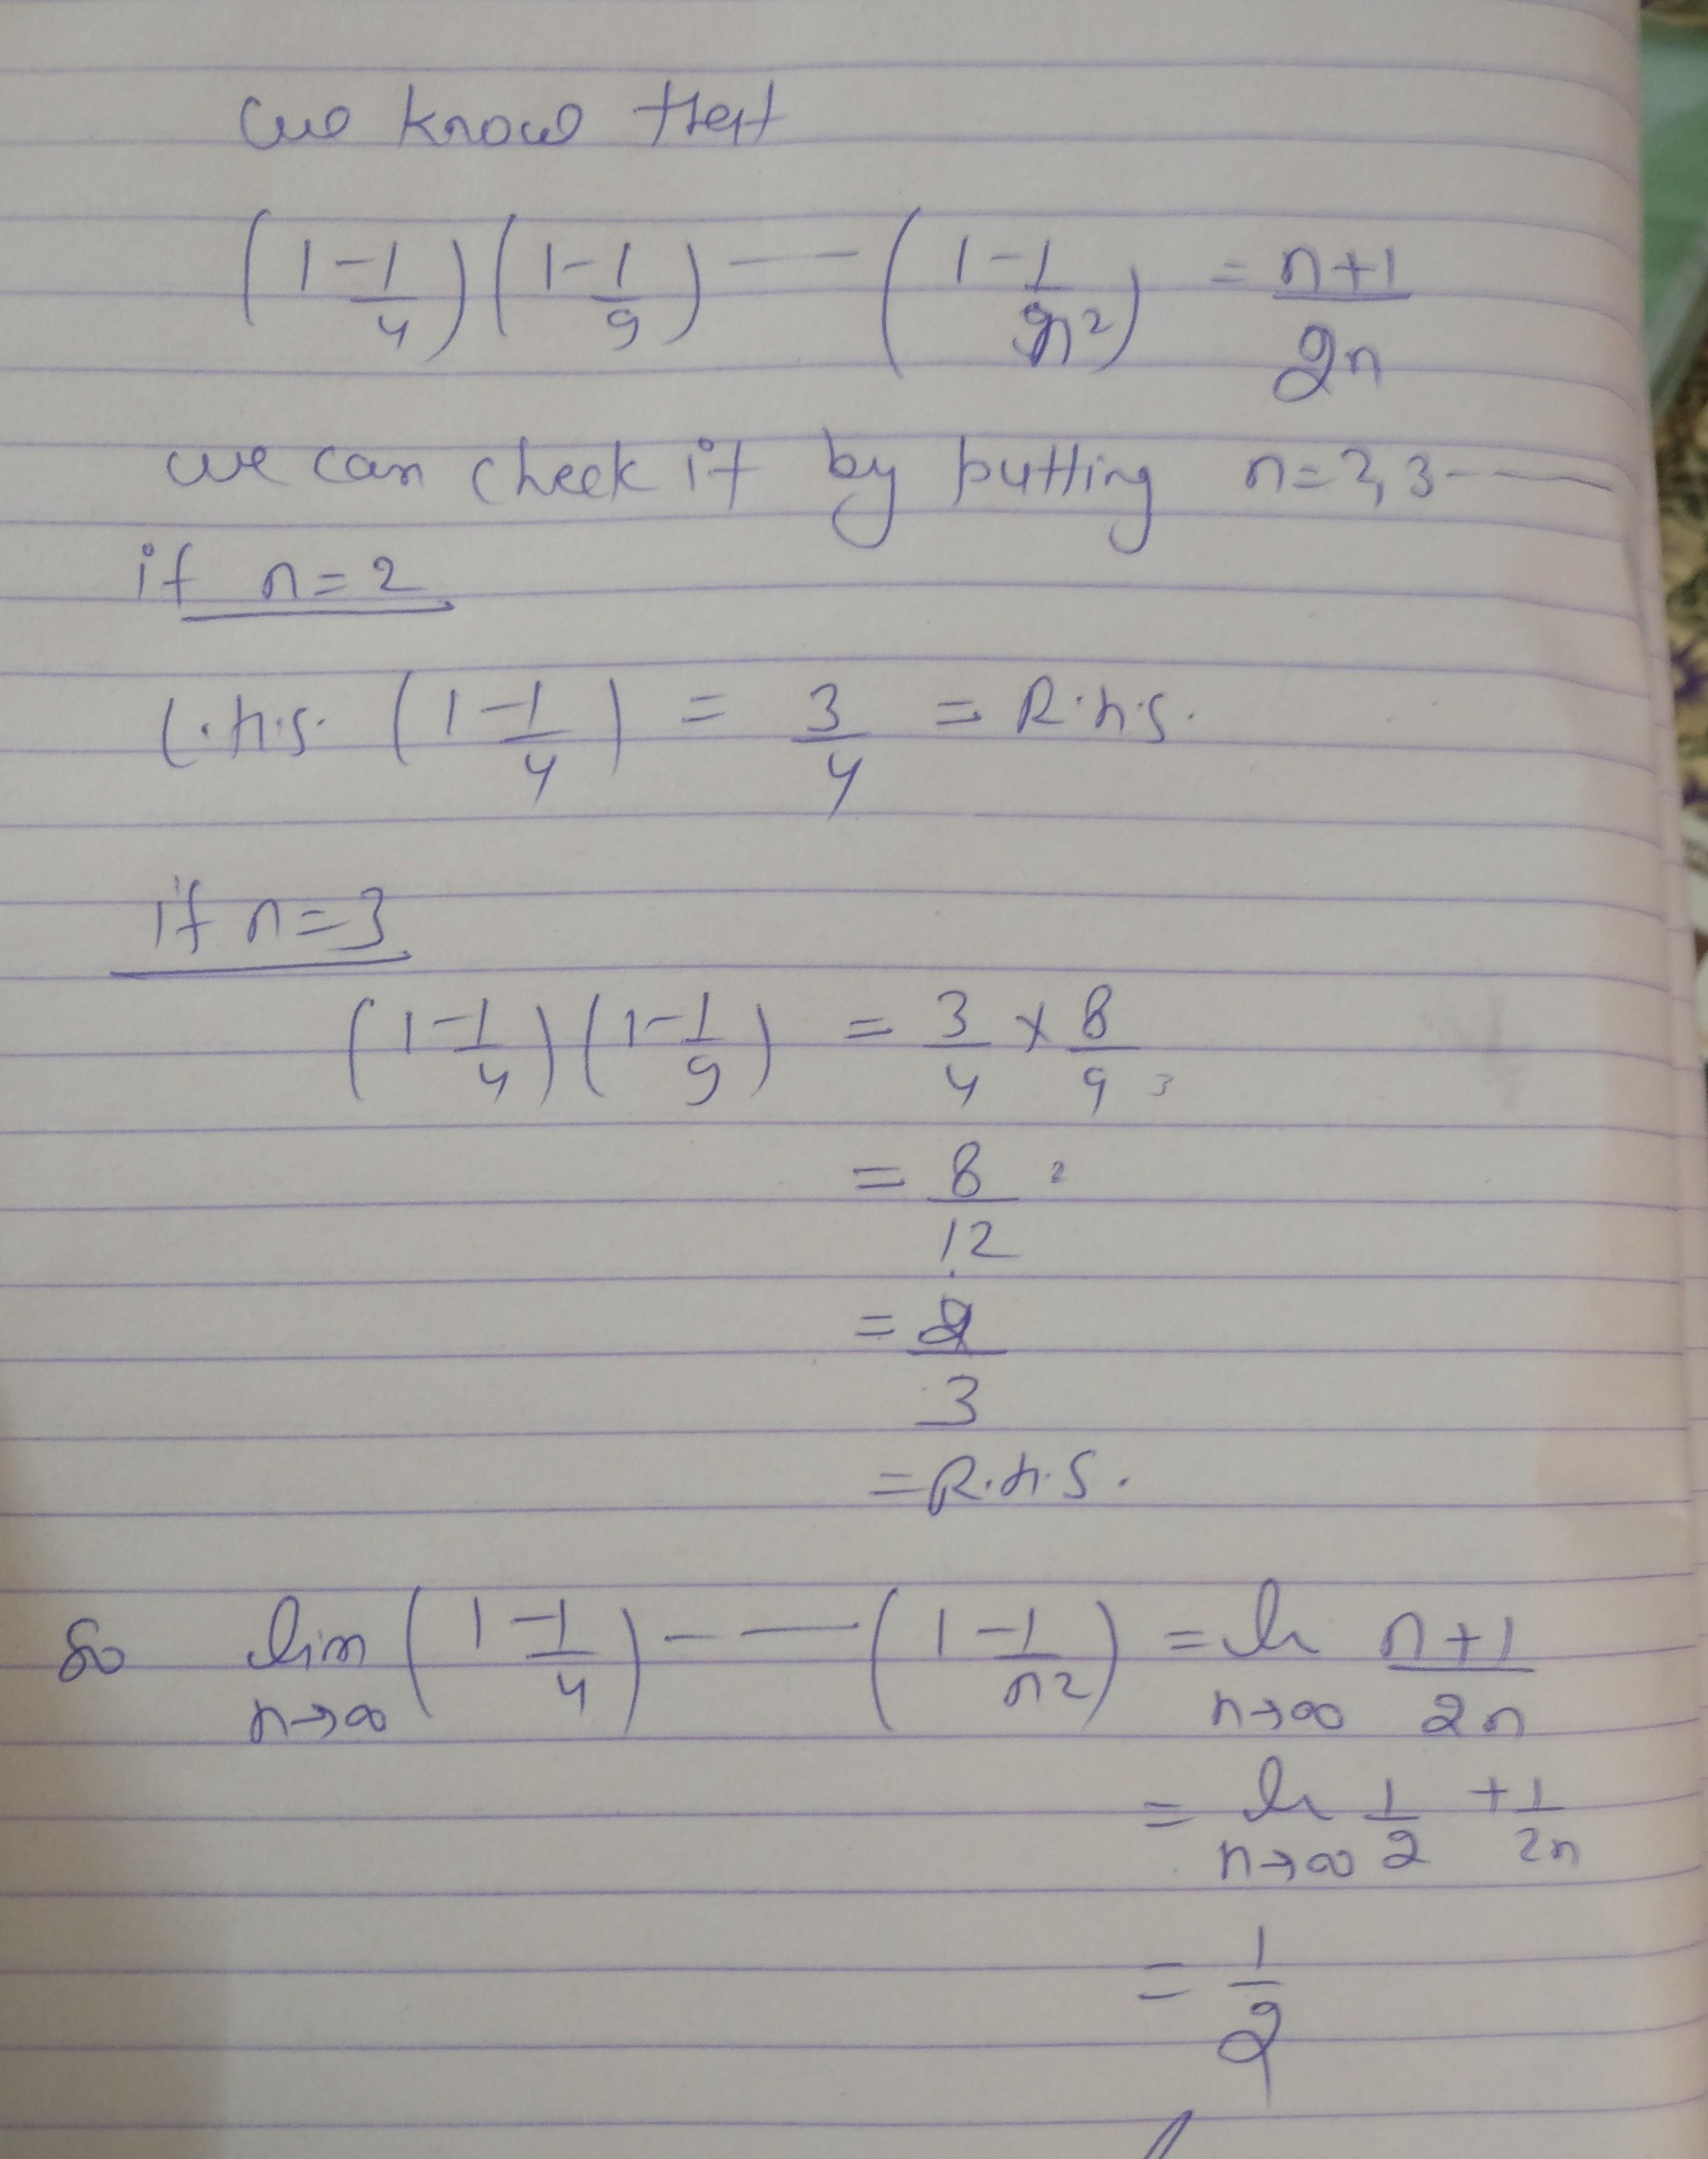 we know that
(1 - 1/4) (1 - 1/9) --- (1 - 1/n²) = n+1/2n
we can check it by putting n=2,3---
if n=2
L.h.s. (1 - 1/4) = 3/4 = R.h.s.
if n=3
(1 - 1/4) (1 - 1/9) = 3/4 × 8/9 3
= 8/12 2
= 2/3
= R.h.s.
So lim n→∞ (1 - 1/4) --- (1 - 1/n2) = li n→∞ n+1/2n
= li n→∞ 1/2 + 1/2n
= 1/2